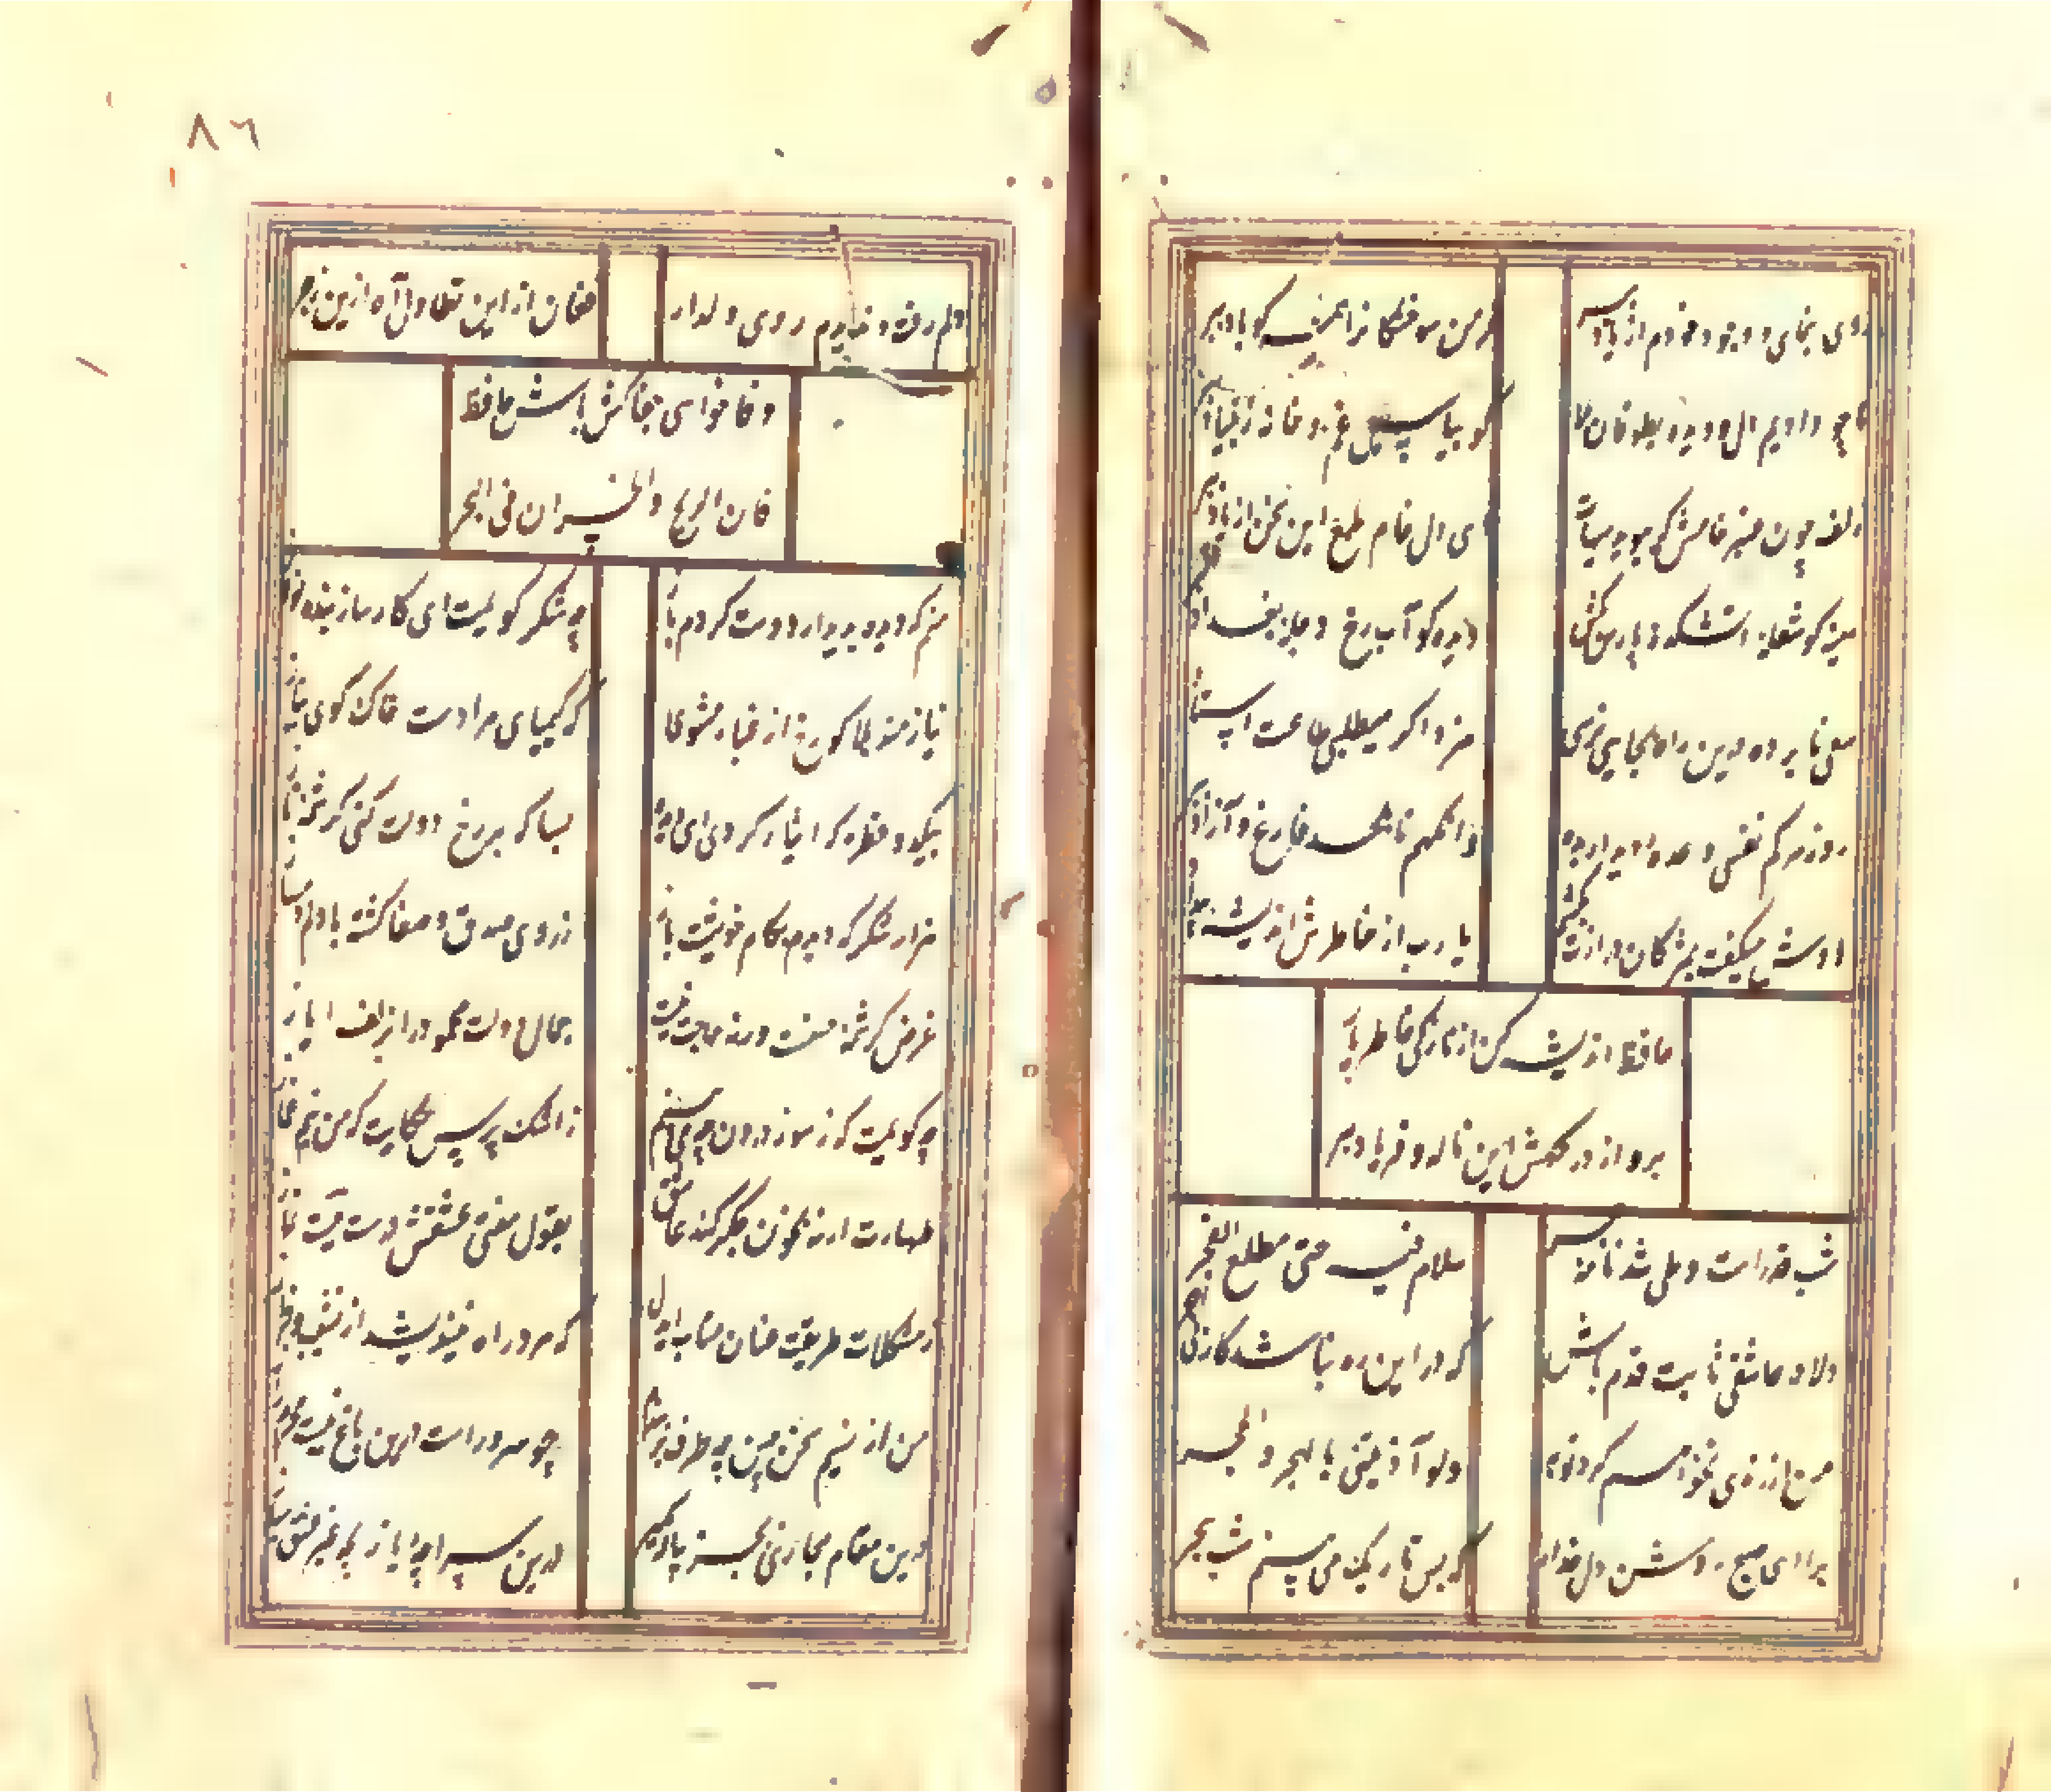 روی بنمای و وجود خودم از یاد ببر
خرمن سوختگان را همه گو باد ببر
ما چو دادیم دل و دیده بطوفان بلا
گو بیا سیل غم و خانه ز بنیاد ببر
زلف چون عنبر خامش که ببوید هیهات
ای دل خام طمع این سخن از یاد ببر
سینه گو شعله آتشکده پارس بکش
دیده گو آب رخ دجله بغداد ببر
سعی نابرده درین راه بجایی نرسی
مزد اگر میطلبی طاعت استاد ببر
روز مرگم نفسی وعده دیدار بده
وانگهم تا بلحد فارغ و آزاد ببر
دوش میگفت بمژگان درازت بکشم
یا رب از خاطرش اندیشه بیداد ببر
حافظ اندیشه کن از نازکی خاطر یار
برو از درگهش این ناله و فریاد ببر
شب قدرست و طی شد نامه هجر
سلام فیه حتی مطلع الفجر
دلا در عاشقی ثابت قدم باش
که در این ره نباشد کار بی اجر
من از رندی نخواهم کرد توبه
ولو آذیتنی بالهجر والحجر
برآ ای صبح روشن دل خدا را
که بس تاریک می بینم شب هجر
۸۶
دلم رفت و ندیدم روی دلدار
فغان از این تطاول آه ازین زجر
وفا خواهی جفاکش باش حافظ
فان الربح والخسران فی التجر
منم که دیده بدیدار دوست کردم باز
چه شکر گویمت ای کارساز بنده نواز
نیازمند بلا گو رخ از غبار مشوی
که کیمیای مرادست خاک کوی نیاز
بیک دو قطره که ایثار کردی ای دیده
بسا که بر رخ دولت کنی کرشمه ناز
هزار شکر که دیدم بکام خویشت باز
ز روی صدق و صفا گشته با دلم دمساز
غرض کرشمه حسنست ورنه حاجت نیست
جمال دولت محمود را بزلف ایاز
چه گویمت که ز سوز درون چه می بینم
ز اشک پرس حکایت که من نیم غماز
طهارت ار نه بخون جگر کند عاشق
بقول مفتی عشقش درست نیست نماز
ز مشکلات طریقت عنان متاب ایدل
که مرد راه نیندیشد از نشیب و فراز
من از نسیم سخن چین چه طرف بربندم
چو سرو راست درین باغ نیست محرم راز
درین مقام مجازی بجز پیاله مگیر
درین سراچه بازیچه غیر عشق مباز